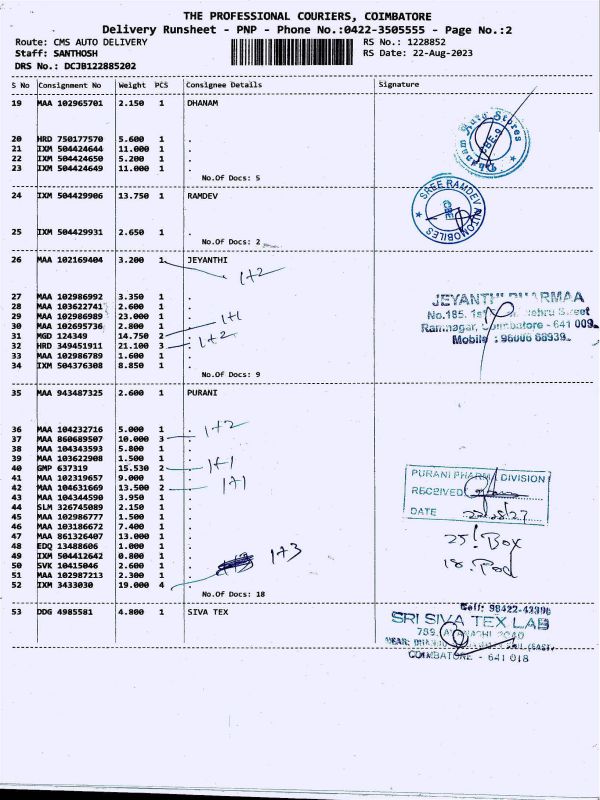 THE PROFESSIONAL COURIERS, COIMBATORE
Delivery Runsheet - PNP - Phone No.:0422-3505555 - Page No.:2
Route: CMS AUTO DELIVERY RS No.: 1228852
Staff: SANTHOSH RS Date: 22-Aug-2023
DRS No.: DCJB122885202
S No Consignment No Weight PCS Consignee Details Signature
19 MAA 102965701 2.150 1 DHANAM
20 HRD 750177570 5.600 1 .
21 IXM 504424644 11.000 1 .
22 IXM 504424650 5.200 1 .
23 IXM 504424649 11.000 1 .
No.Of Docs: 5
Stores
CBE-9
24 IXM 504429906 13.750 1 RAMDEV
25 IXM 504429931 2.650 1 .
No.Of Docs: 2
SREE RAMDEV AUTOMOBILES
CBE
26 MAA 102169404 3.200 1 JEYANTHI
1+2
27 MAA 102986992 3.350 1 .
28 MAA 103622741 2.600 1 .
29 MAA 102986989 23.000 1 .
30 MAA 102695736 2.800 1 .
31 MGD 124349 14.750 2 . 1+1
32 HRD 349451911 21.100 3 . 1+2
33 MAA 102986789 1.600 1 .
34 IXM 504376308 8.850 1 .
No.Of Docs: 9
JEYANTHI PHARMAA
No.185, 1st Nehru Street
Ramnagar, Coimbatore - 641 009.
Mobile : 96006 68939
35 MAA 943487325 2.600 1 PURANI
36 MAA 104232716 5.000 1 .
37 MAA 860689507 10.000 3 . 1+2
38 MAA 104343593 5.800 1 .
39 MAA 103622908 1.500 1 .
40 GMP 637319 15.530 2 . 1+1
41 MAA 102319657 9.000 1 .
42 MAA 104631669 13.500 2 . 1+1
43 MAA 104344590 3.950 1 .
44 SLM 326745089 2.150 1 .
45 MAA 102986777 1.500 1 .
46 MAA 103186672 7.400 1 .
47 MAA 861326407 13.000 1 .
48 EDQ 13488606 1.000 1 .
49 IXM 504412642 0.800 1 .
50 SVK 10415046 2.600 1 .
51 MAA 102987213 2.300 1 .
52 IXM 3433030 19.000 4 . 1+3
No.Of Docs: 18
PURANI PHARMA DIVISION
RECEIVED
DATE
25! Box
18. Pod
53 DDG 4985581 4.800 1 SIVA TEX
Cell: 98422-43396
SRI SIVA TEX LAB
COIMBATORE - 641 018